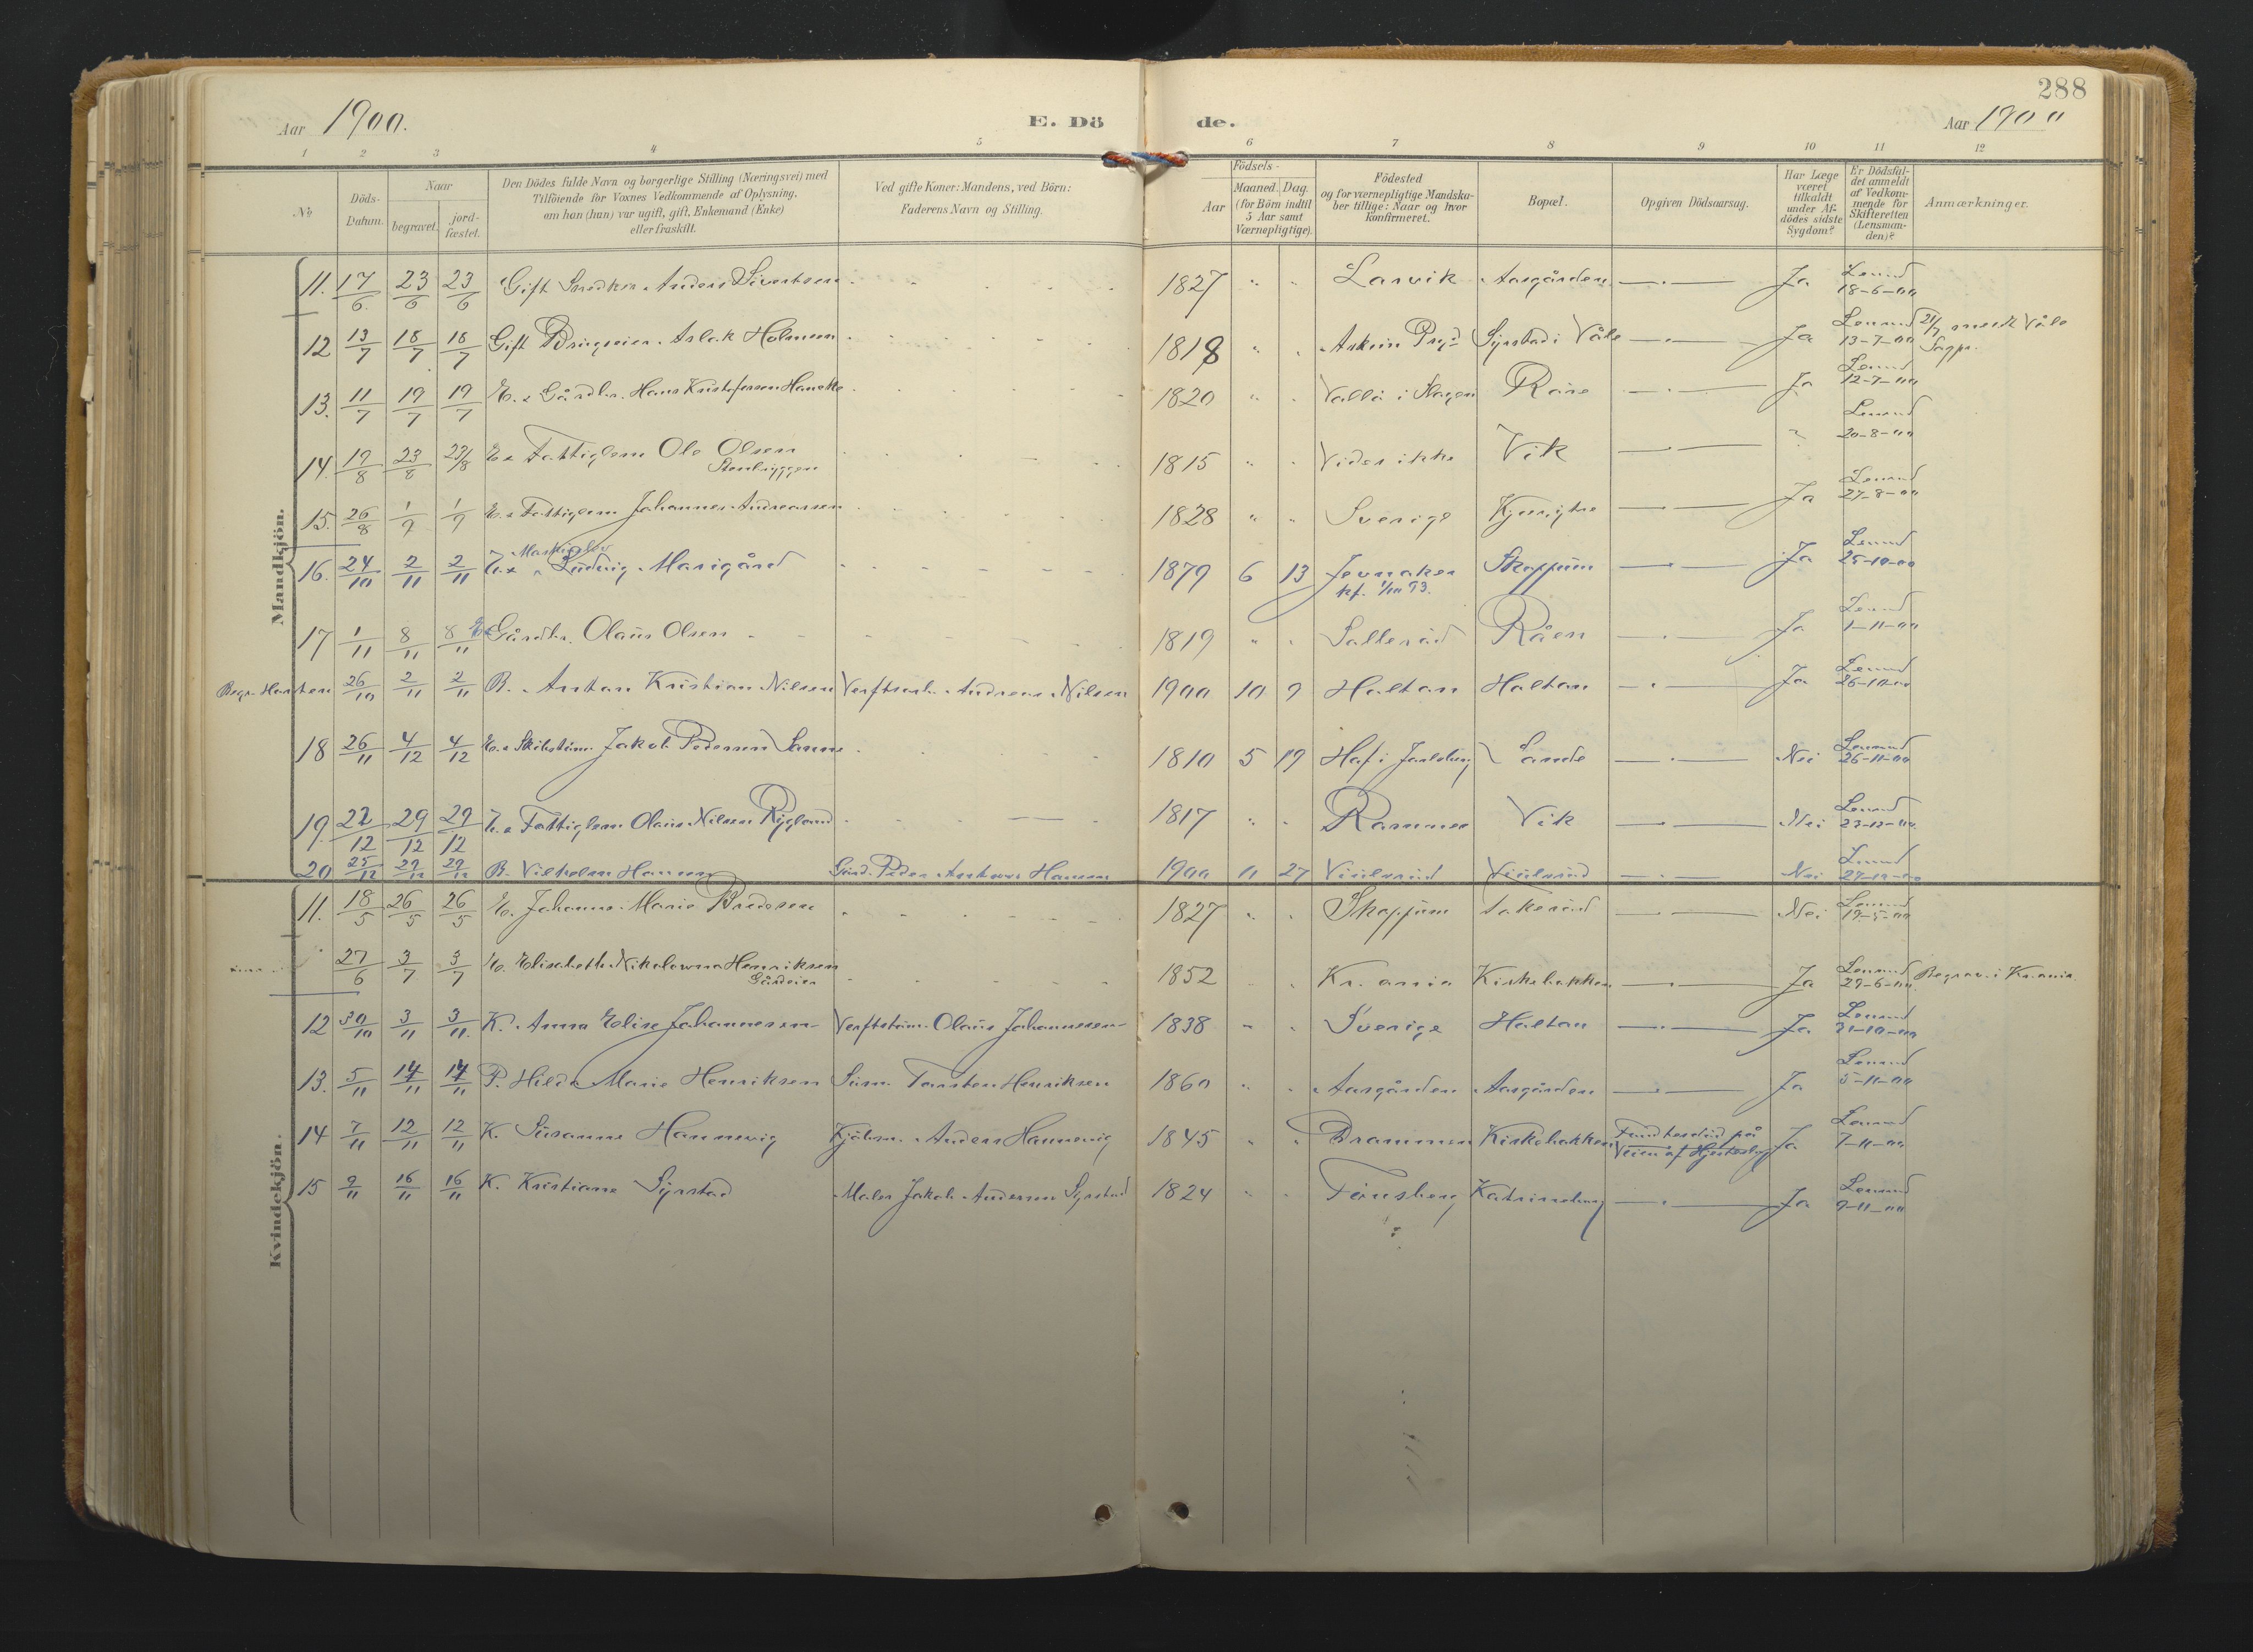 288
Aar 1900.
E. Dö de.
Aar 1900
1 2 3 4 5 6 7 8 9 10 11 12
No
Döds-Datum.
Naar
begravet.
jord-fæstet.
Den Dödes fulde Navn og borgerlige Stilling (Næringsvei) med
Tilföiende for Voxnes Vedkommende af Oplysning,
om han (hun) var ugift, gift, Enkemand (Enke)
eller fraskilt.
Ved gifte Koner: Mandens, ved Börn:
Faderens Navn og Stilling.
Födsels-
Aar
Maaned. Dag.
(for Börn indtil
5 Aar samt
Værnepligtige).
Födested
og for værnepligtige Mandska-
ber tillige: Naar og hvor
konfirmeret.
Bopæl.
Opgiven Dödsaarsag.
Har Læge
været
tilkaldt
under Af-
dödes sidste
Sygdom?
Er Dödsfal-
det anmeldt
af Vedkom-
mende for
Skifteretten
(Lensman-
den)?
Anmærkninger.
Mandkjön.
11. 17/6. 23/6 23/6 Gift Snedker Anders Sivertsen 1827 " " Larvik Aasgården Ja Lensmd 18-6-00
12 13/7 18/7 18/7 Gift Aslak Holmsen 1818 " " Syrstad i Våle Ja Lensmd 13-7-00
13. 11/7 19/7 19/7 E. Gårdbr. Hans Kristofersen 1820 " " Ja Lensmd 12-7-00
14. 19/8 23/8 23/8 E. Fattiglem Ole Olsen 1815 " " Vides ikke Vik Lensmd 20-8-00
15. 26/8 1/9 1/9 E. Fattiglem Johannes Andreassen 1828 " " Sverige Ja Lensmd 27-8-00
16. 24/10 2/11 2/11 Ludvig Marigård 1879 6 13 Jevnaker kf. 1/10 93. Skoppum Ja Lensmd 25-10-00
17 1/11 8/11 8/11 Gårdbr. Olaus Olsen 1819 " " Sallerød Råen Ja Lensmd 1-11-00
Begr. Horten 26/10 2/11 2/11 B. Anton Kristian Nilsen Verftsarb. Andreas Nilsen 1900 10 9 Holtan Holtan Ja Lensmd 26-10-00
18 26/11 4/12 4/12 E. Skibstøm. Jakob Pedersen Sanne 1810 5 19 Hof i Jarlsberg Sande Nei Lensmd 26-11-00
19. 22/12 29/12 29/12 Fattiglem Olaus Nilsen 1817 " " Ramnes Vik Nei Lensmd 23-12-00
20 25/12 29/12 29/12 B. Vilhelm Hansen Gård. Peder Anthon Hansen 1900 11 27 Viulsrud Viulsrud Nei Lensmd 27-12-00
Kvindekjön.
11. 18/5 26/5 26/5 E. Johanne Marie Bredesen 1827 " " Skoppum Nei Lensmd 19-5-00
27/6 3/7 3/7 E. Elisabeth Nikolowna Henriksen Gårdeier 1852 " Kr.ania Kirkebakken Ja Lensmd 29-6-00 Begrav. i Kr.ania.
12 30/10 3/11 3/11. K. Anna Elise Johannesen Verftstøm. Olaus Johannesen 1838 " " Sverige Holtan Ja Lensmd 31-10-00
13. 5/11 14/11 14/11 P. Hilda Marie Henriksen Søm. Torsten Henriksen 1860 " " Aasgården Aasgården Ja Lensmd 5-11-00
14 7/11 12/11 12/11 K. Susanne Hannevig Kjøbm. Anders Hannevig 1845 " " Drammen Kirkebakken Fundtes død på Veien af Hjerteslag Ja Lensmd 7-11-00
15 9/11 16/11 16/11 K. Kristiane Syrstad Maler Jakob Andersen Syrstad 1824 " " Tønsberg Katrineborg Ja Lensmd 9-11-00